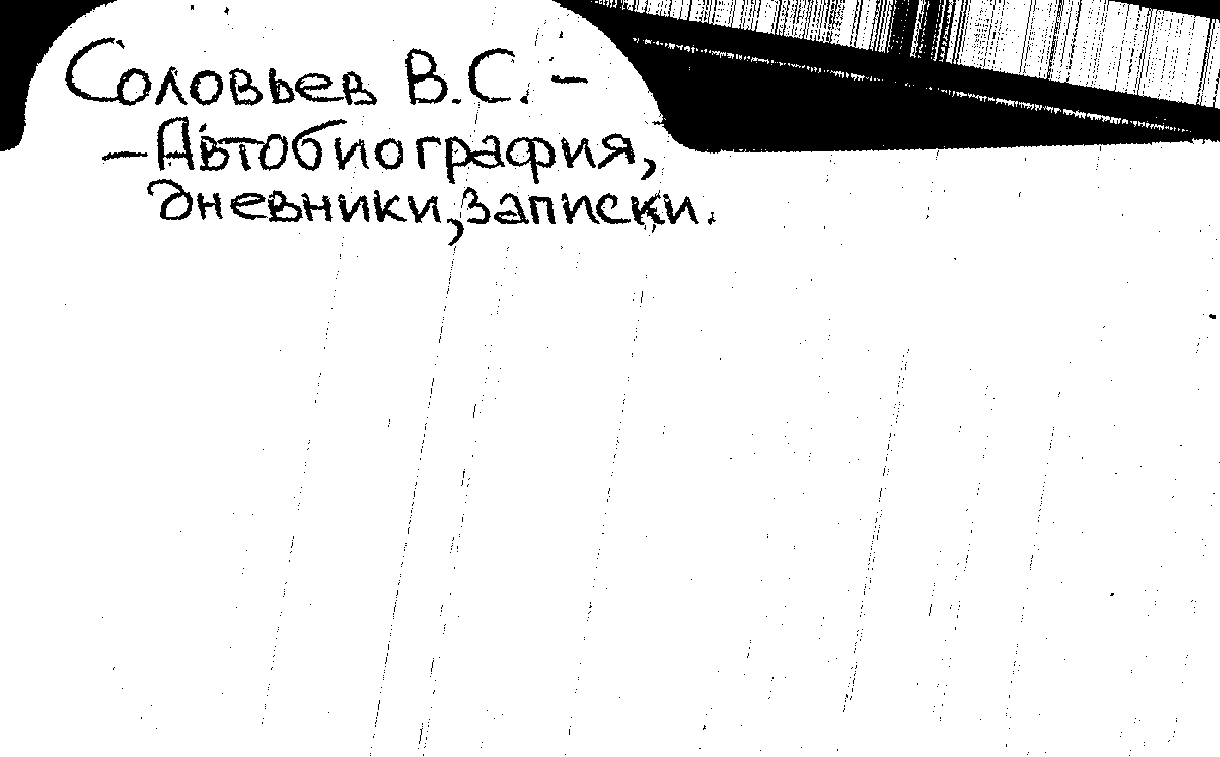 Соловьев В.С. –
– Автобиография,
дневники, записки.